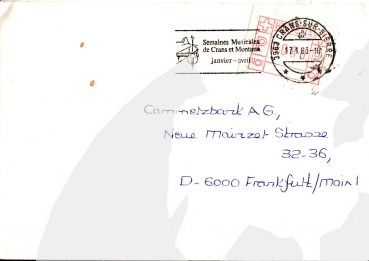 Semaines Musicales
de Crans et Montana
janvier-avril
3963 CRANS-SUR-SIERRE
Commetzbank AG,
Neue Mainzet Strasse
32-36,
D-6000 Frankfutt/Main 1